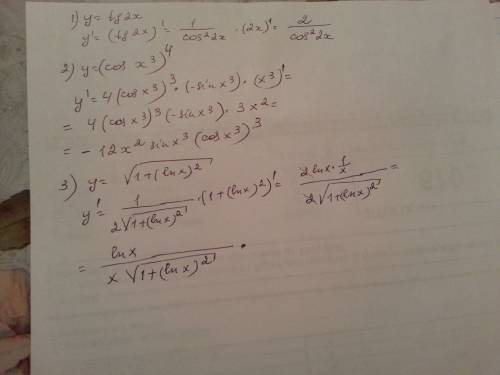 1) y = tg 2x
y' = (tg 2x)' = 1/cos² 2x · (2x)' = 2/cos² 2x
2) y = (cos x³)⁴
y' = 4 (cos x³)³ · (-sin x³) · (x³)' =
= 4 (cos x³)³ (-sin x³) · 3x² =
= - 12x² sin x³ (cos x³)³
3) y = √(1+(ln x)²)
y' = 1/(2√(1+(ln x)²)) · (1+(ln x)²)' = (2 ln x · 1/x)/(2√(1+(ln x)²)) =
= ln x/(x √(1+(ln x)²)) .